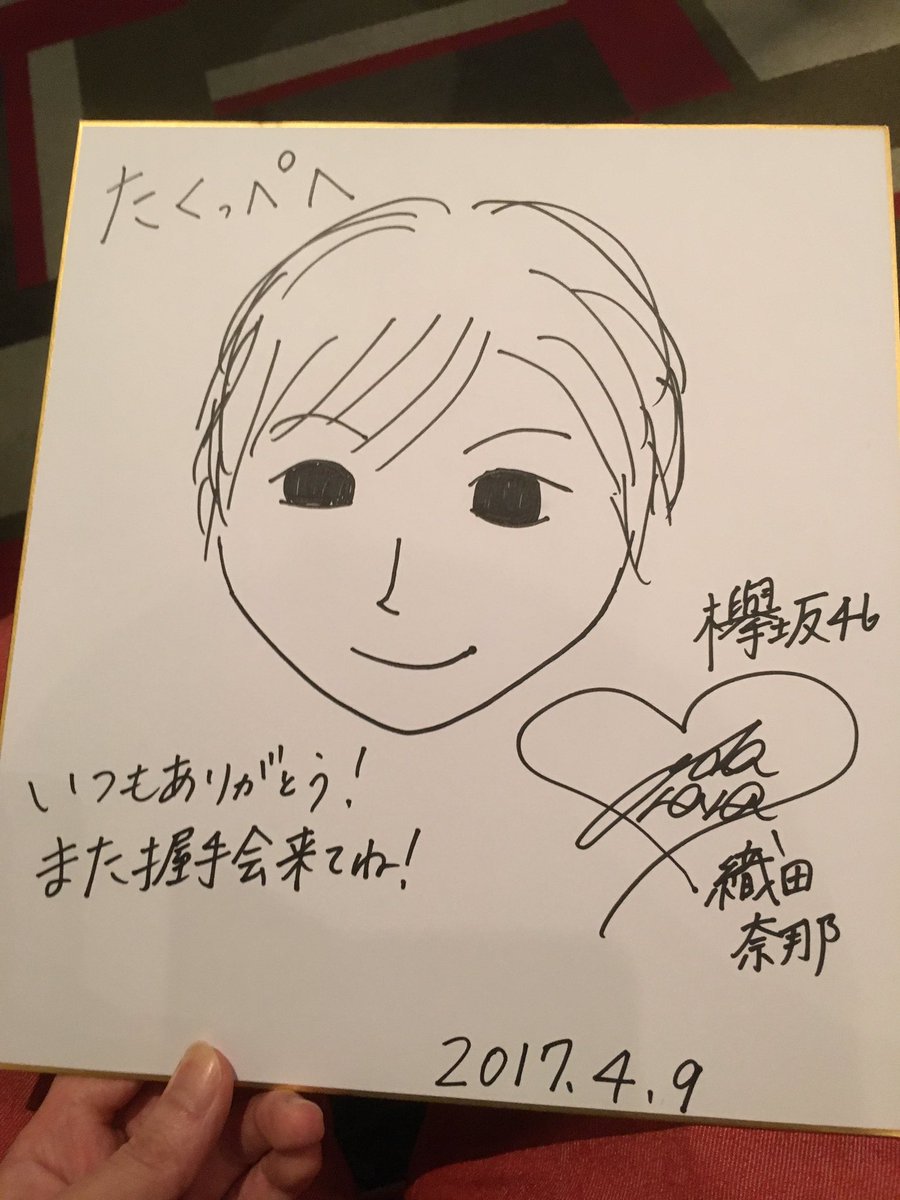 たくっぺへ
欅坂46
いつもありがとう!
また握手会来てね!
織田
奈那
2017.4.9